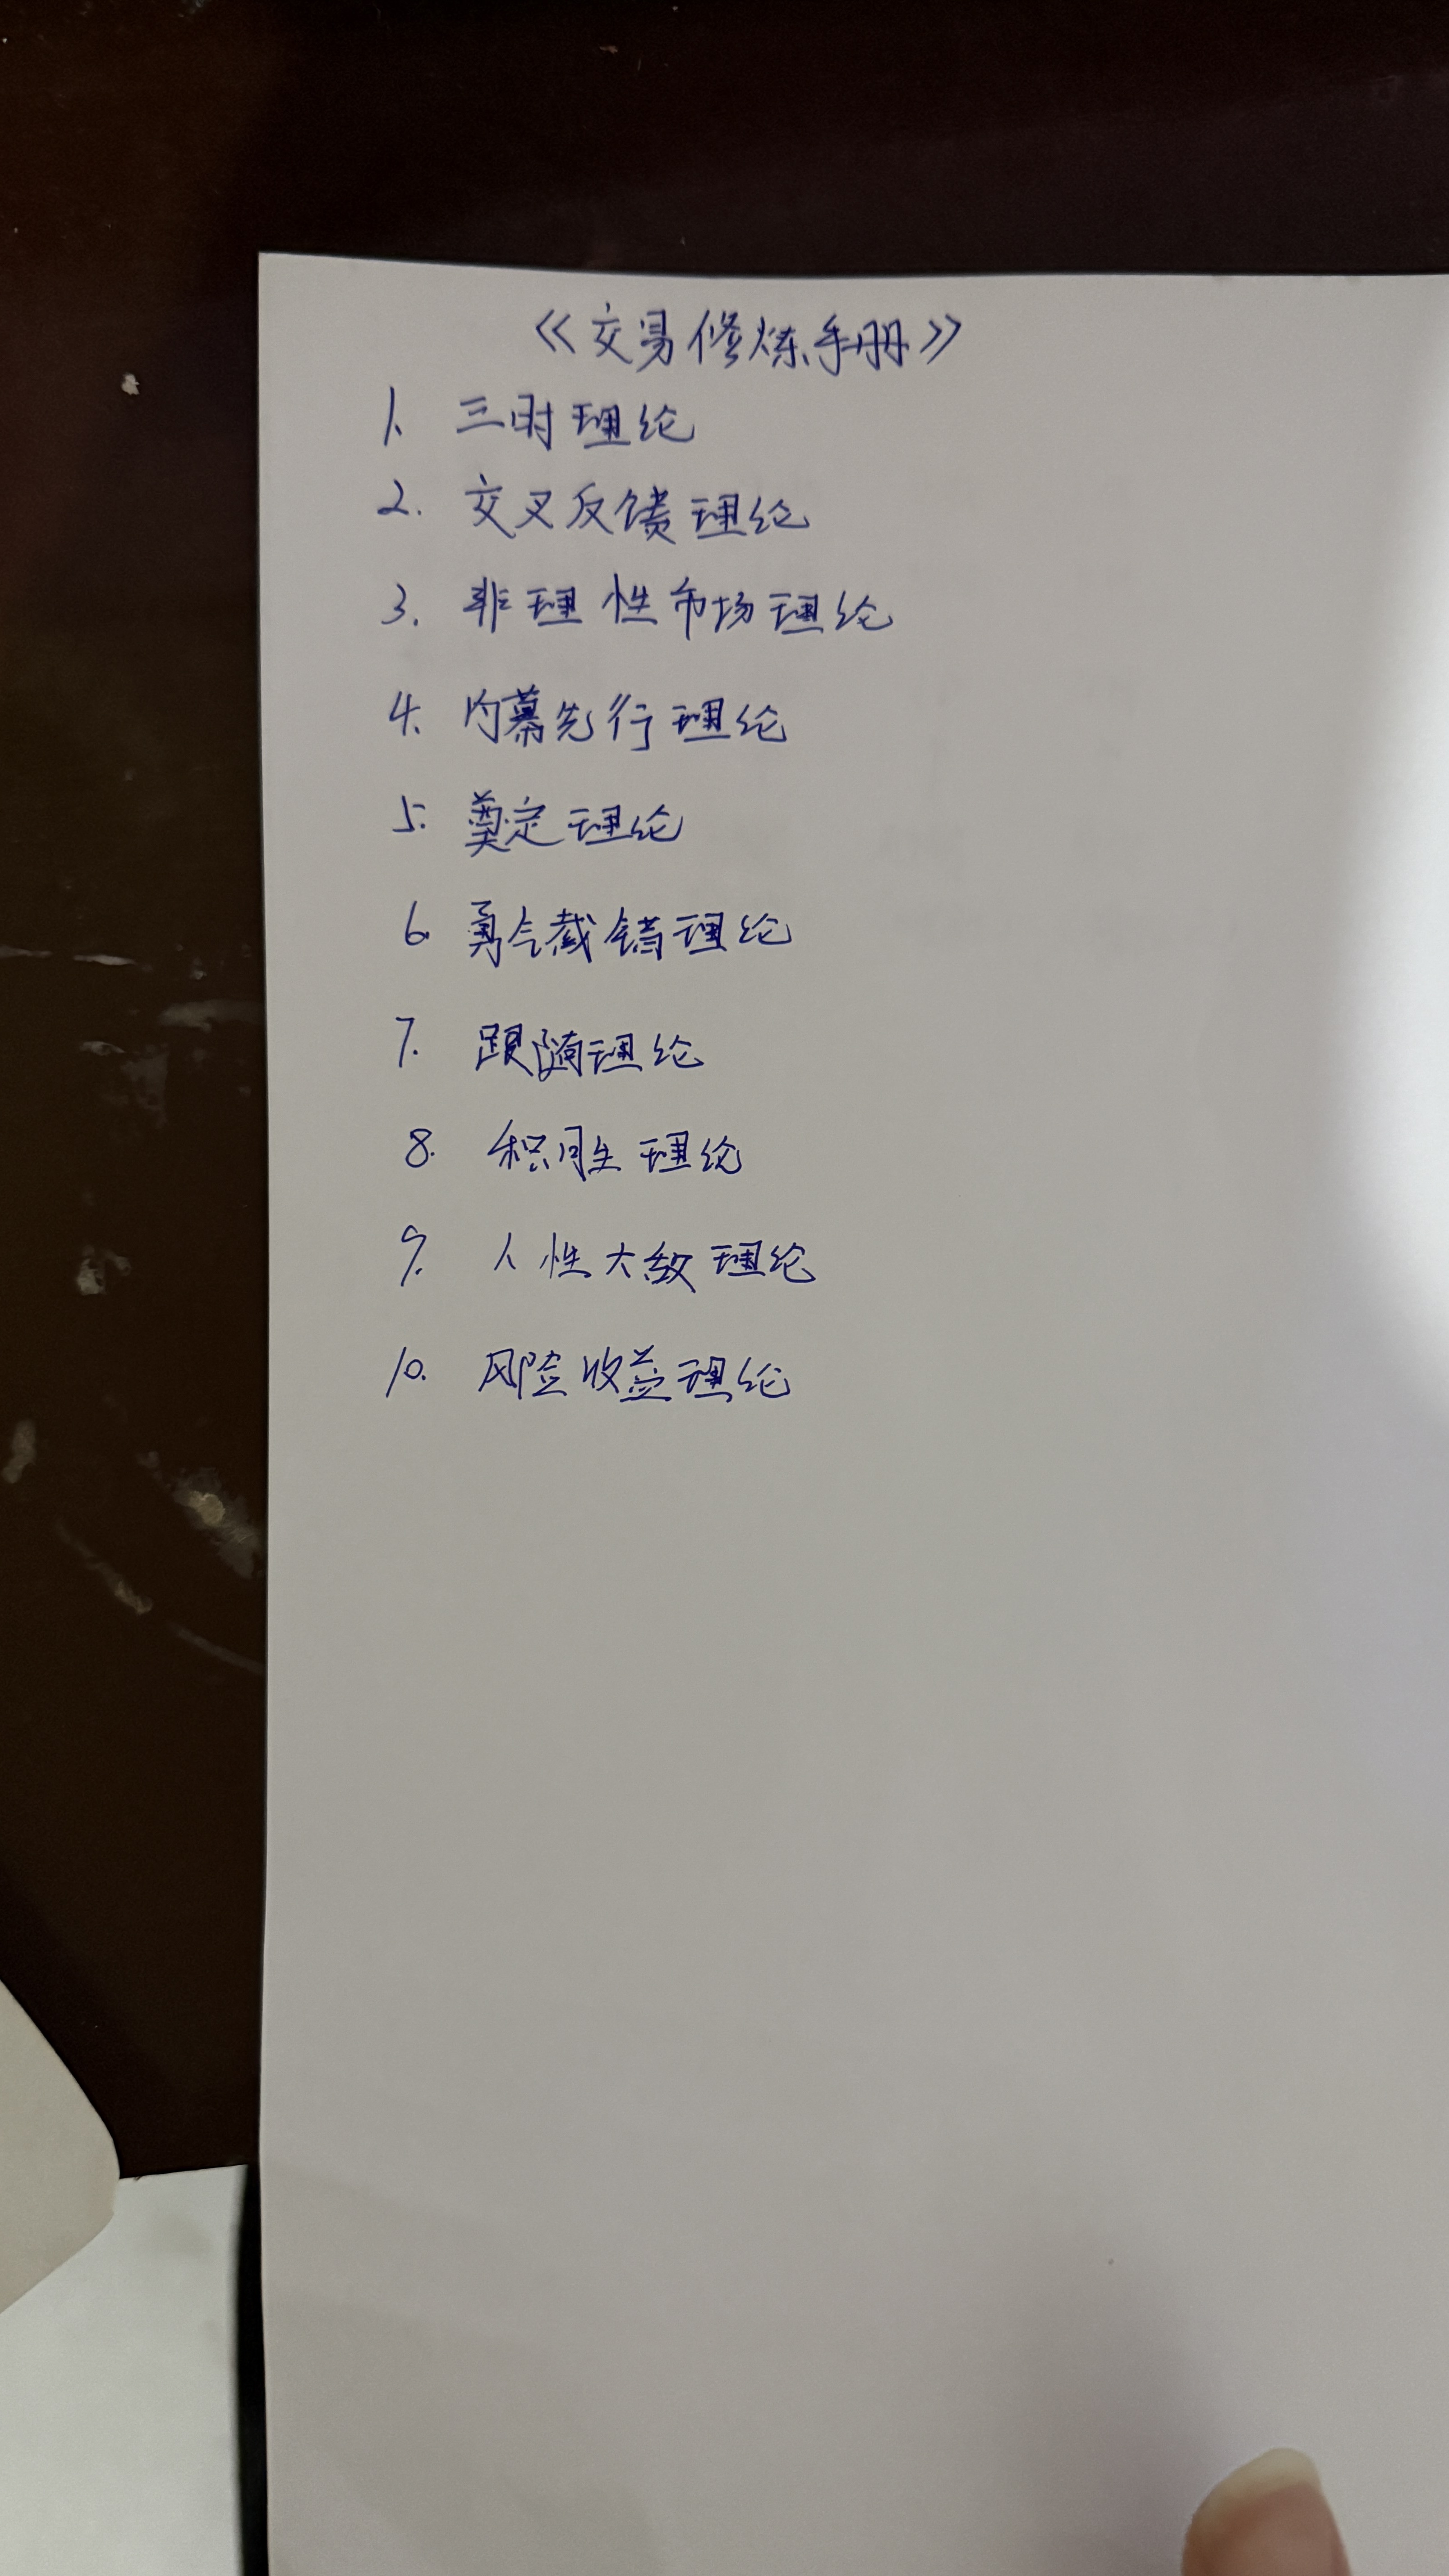 《交易修炼手册》
1. 三时理论
2. 交叉反馈理论
3. 非理性市场理论
4. 内幕先行理论
5. 奠定理论
6. 勇气截错理论
7. 跟随理论
8. 积 理论
9. 人性大敌理论
10. 风险收益理论